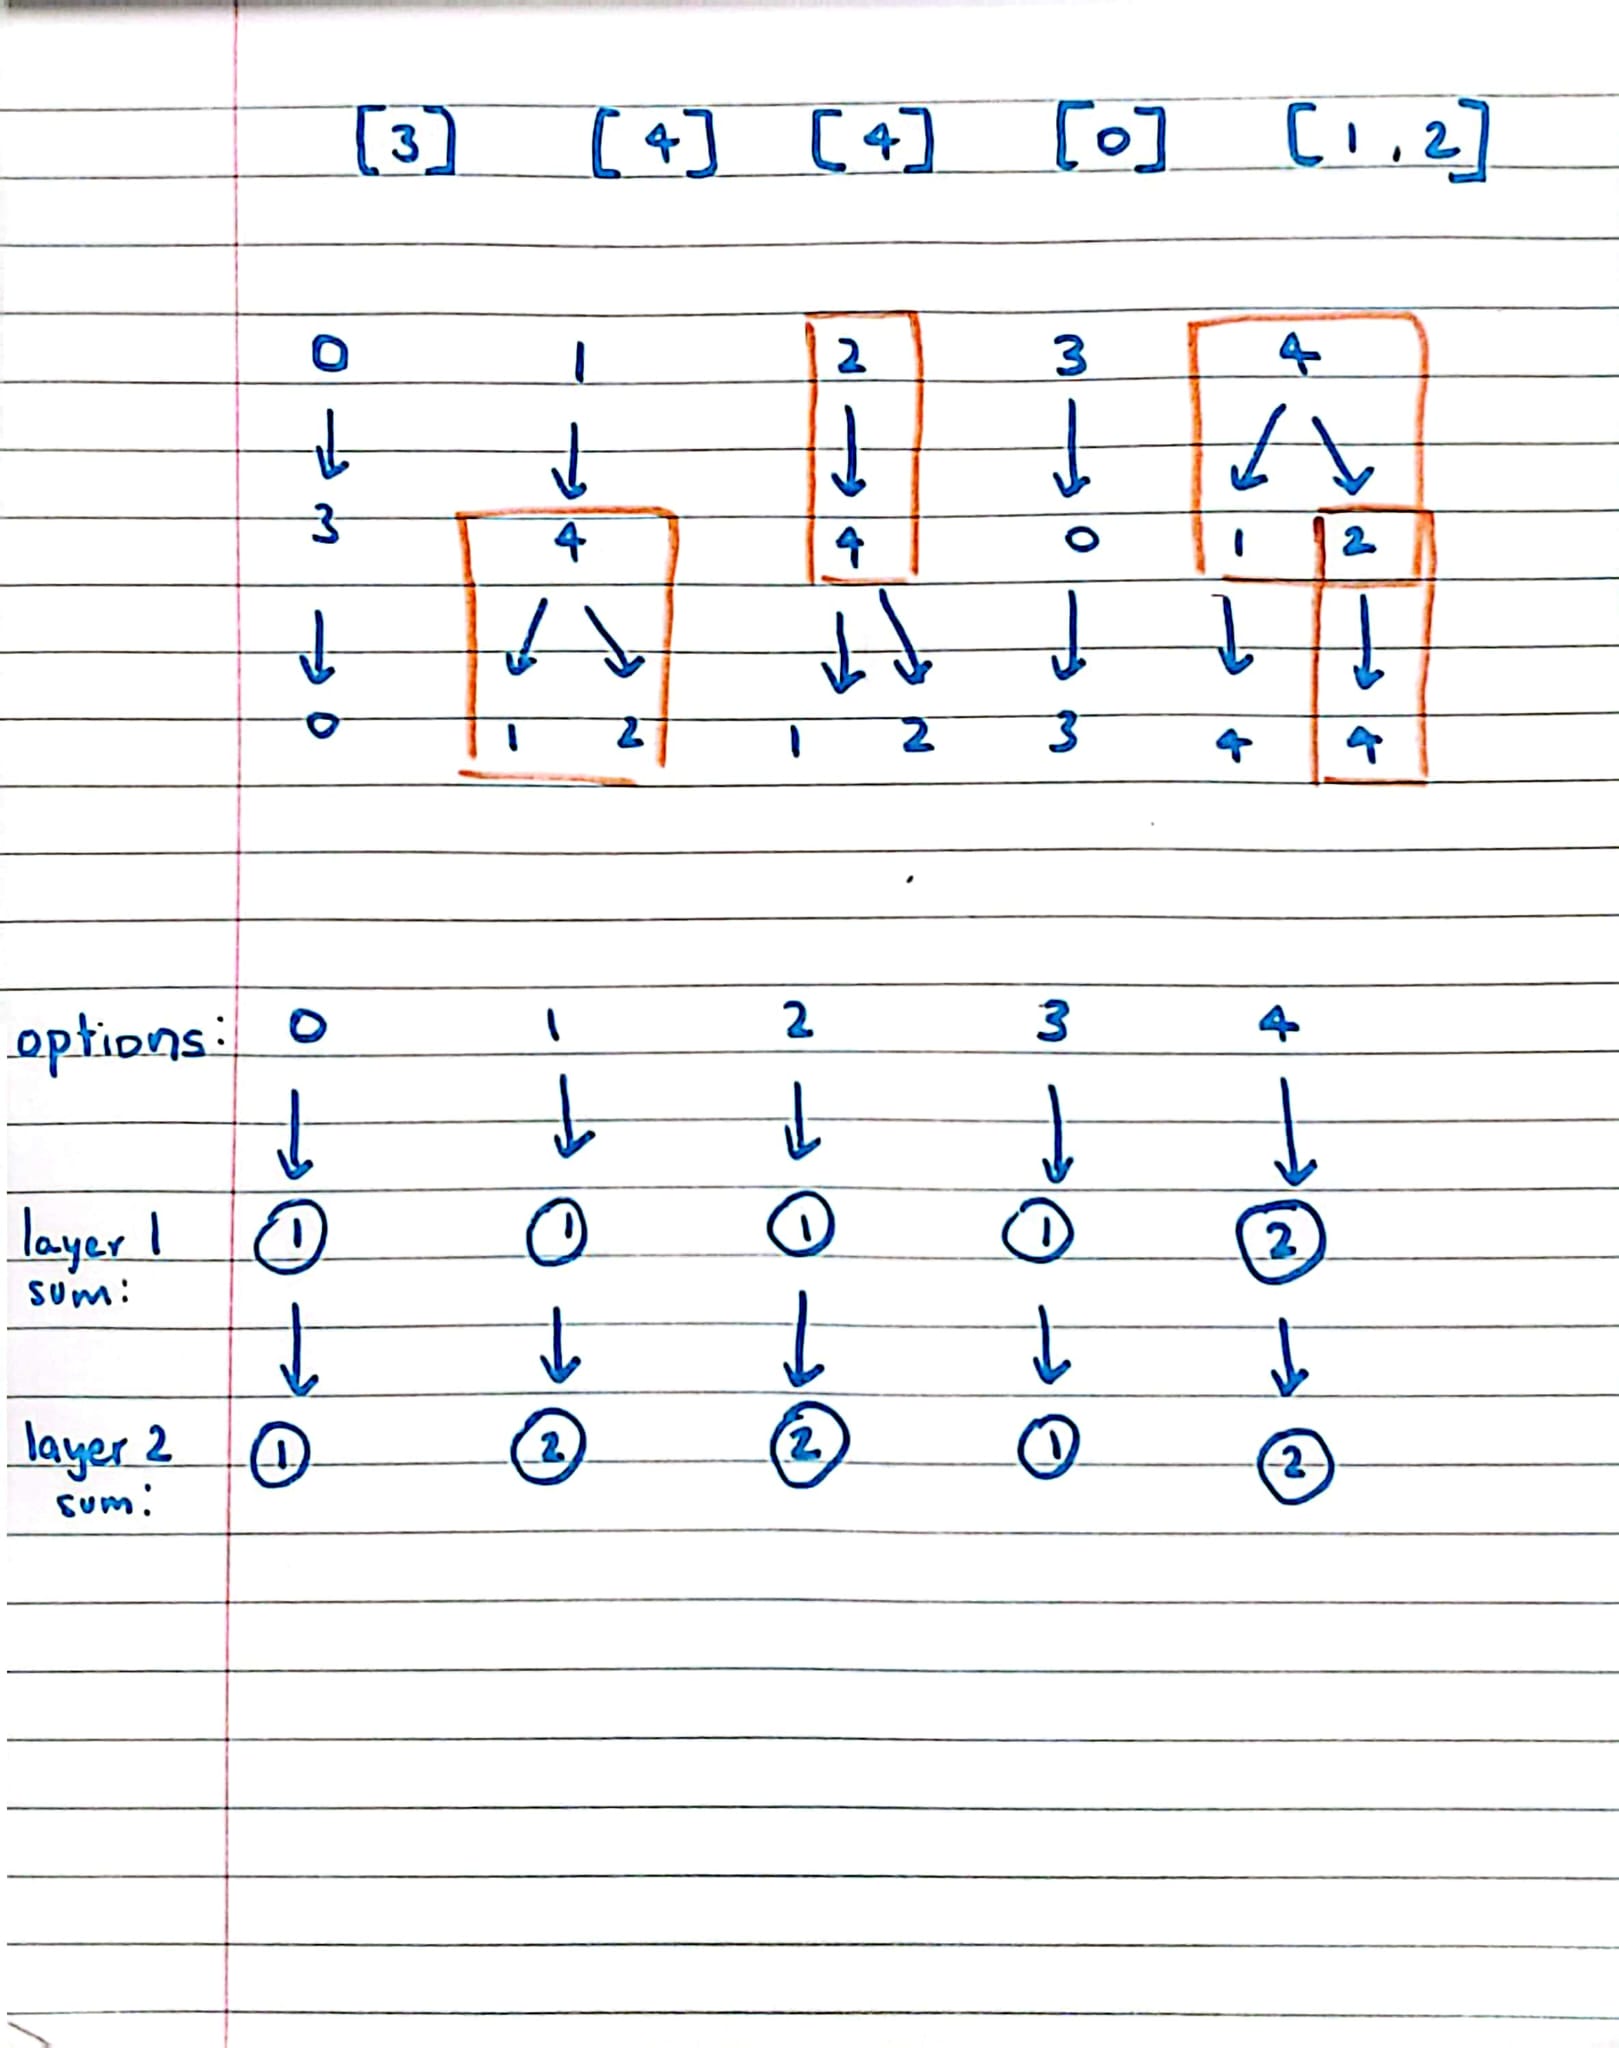 [3] [4] [4] [0] [1,2]
0 1 2 3 4
3 4 4 0 1 2
0 1 2 1 2 3 4 4
options: 0 1 2 3 4
layer 1 sum: 1 1 1 1 2
layer 2 sum: 1 2 2 1 2